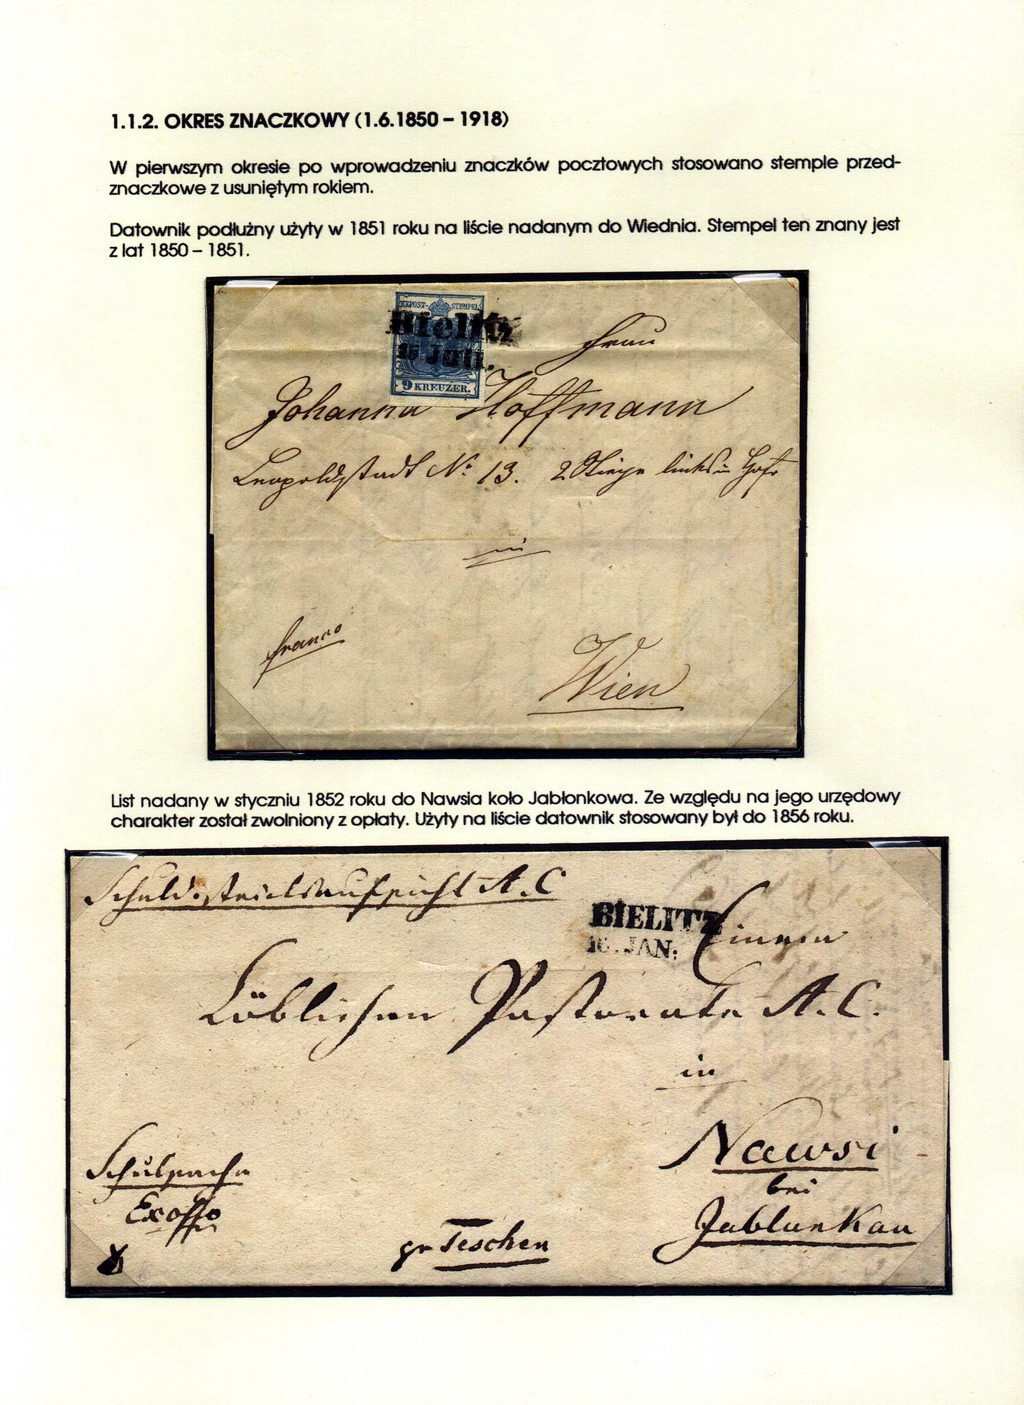 1.1.2. OKRES ZNACZKOWY (1.6.1850 – 1918)
W pierwszym okresie po wprowadzeniu znaczków pocztowych stosowano stemple przed-
znaczkowe z usuniętym rokiem.
Datownik podłużny użyty w 1851 roku na liście nadanym do Wiednia. Stempel ten znany jest
z lat 1850 – 1851.
KKPOST-STEMPEL
Bielitz
15 Juli.
9 KREUZER.
Frau
Johanna Hoffmann
Leopoldstadt No 13. 2 Stiege links im Hofe
in
franco
Wien
List nadany w styczniu 1852 roku do Nawsia koło Jabłonkowa. Ze względu na jego urzędowy
charakter został zwolniony z opłaty. Użyty na liście datownik stosowany był do 1856 roku.
Schuldistriktsaufsicht A.C
BIELITZ
16. JAN:
Einem
Löblichen Pastorate A.C.
in
Nawsi
bei
Jablunkau
Schulsache
Exoffo
pr Teschen